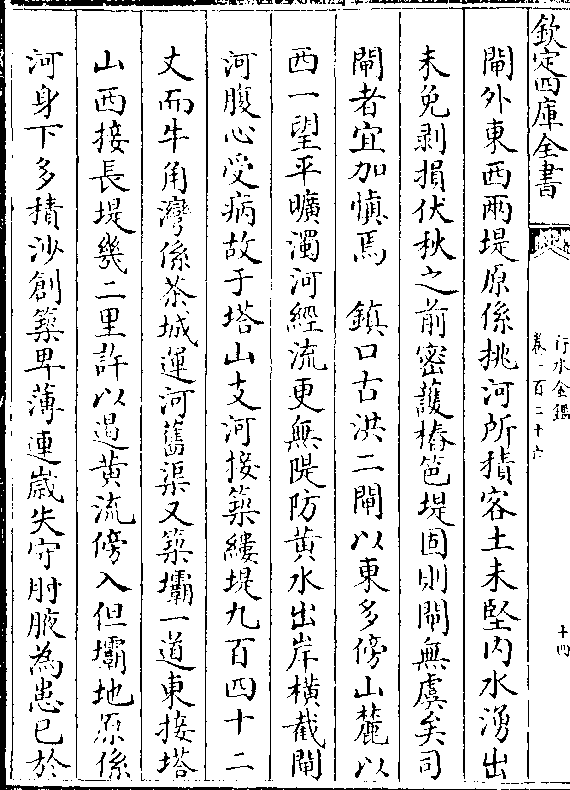 欽定四庫全書
行水金鑑
卷一百二十六
十四
閘外東西兩堤原係挑河所積客土未堅内水湧出
未免剥損伏秋之前密護樁笆堤固則閘無虞矣司
閘者宜加慎焉　鎮口古洪二閘以東多傍山麓以
西一望平曠濁河經流更無隄防黄水出岸橫截閘
河腹心受病故于塔山支河接築縷堤九百四十二
丈而牛角灣係茶城運河舊渠又築壩一道東接塔
山西接長堤幾二里許以遏黄流傍入但壩地原係
河身下多積沙創築卑薄連歳失守肘腋為患已於